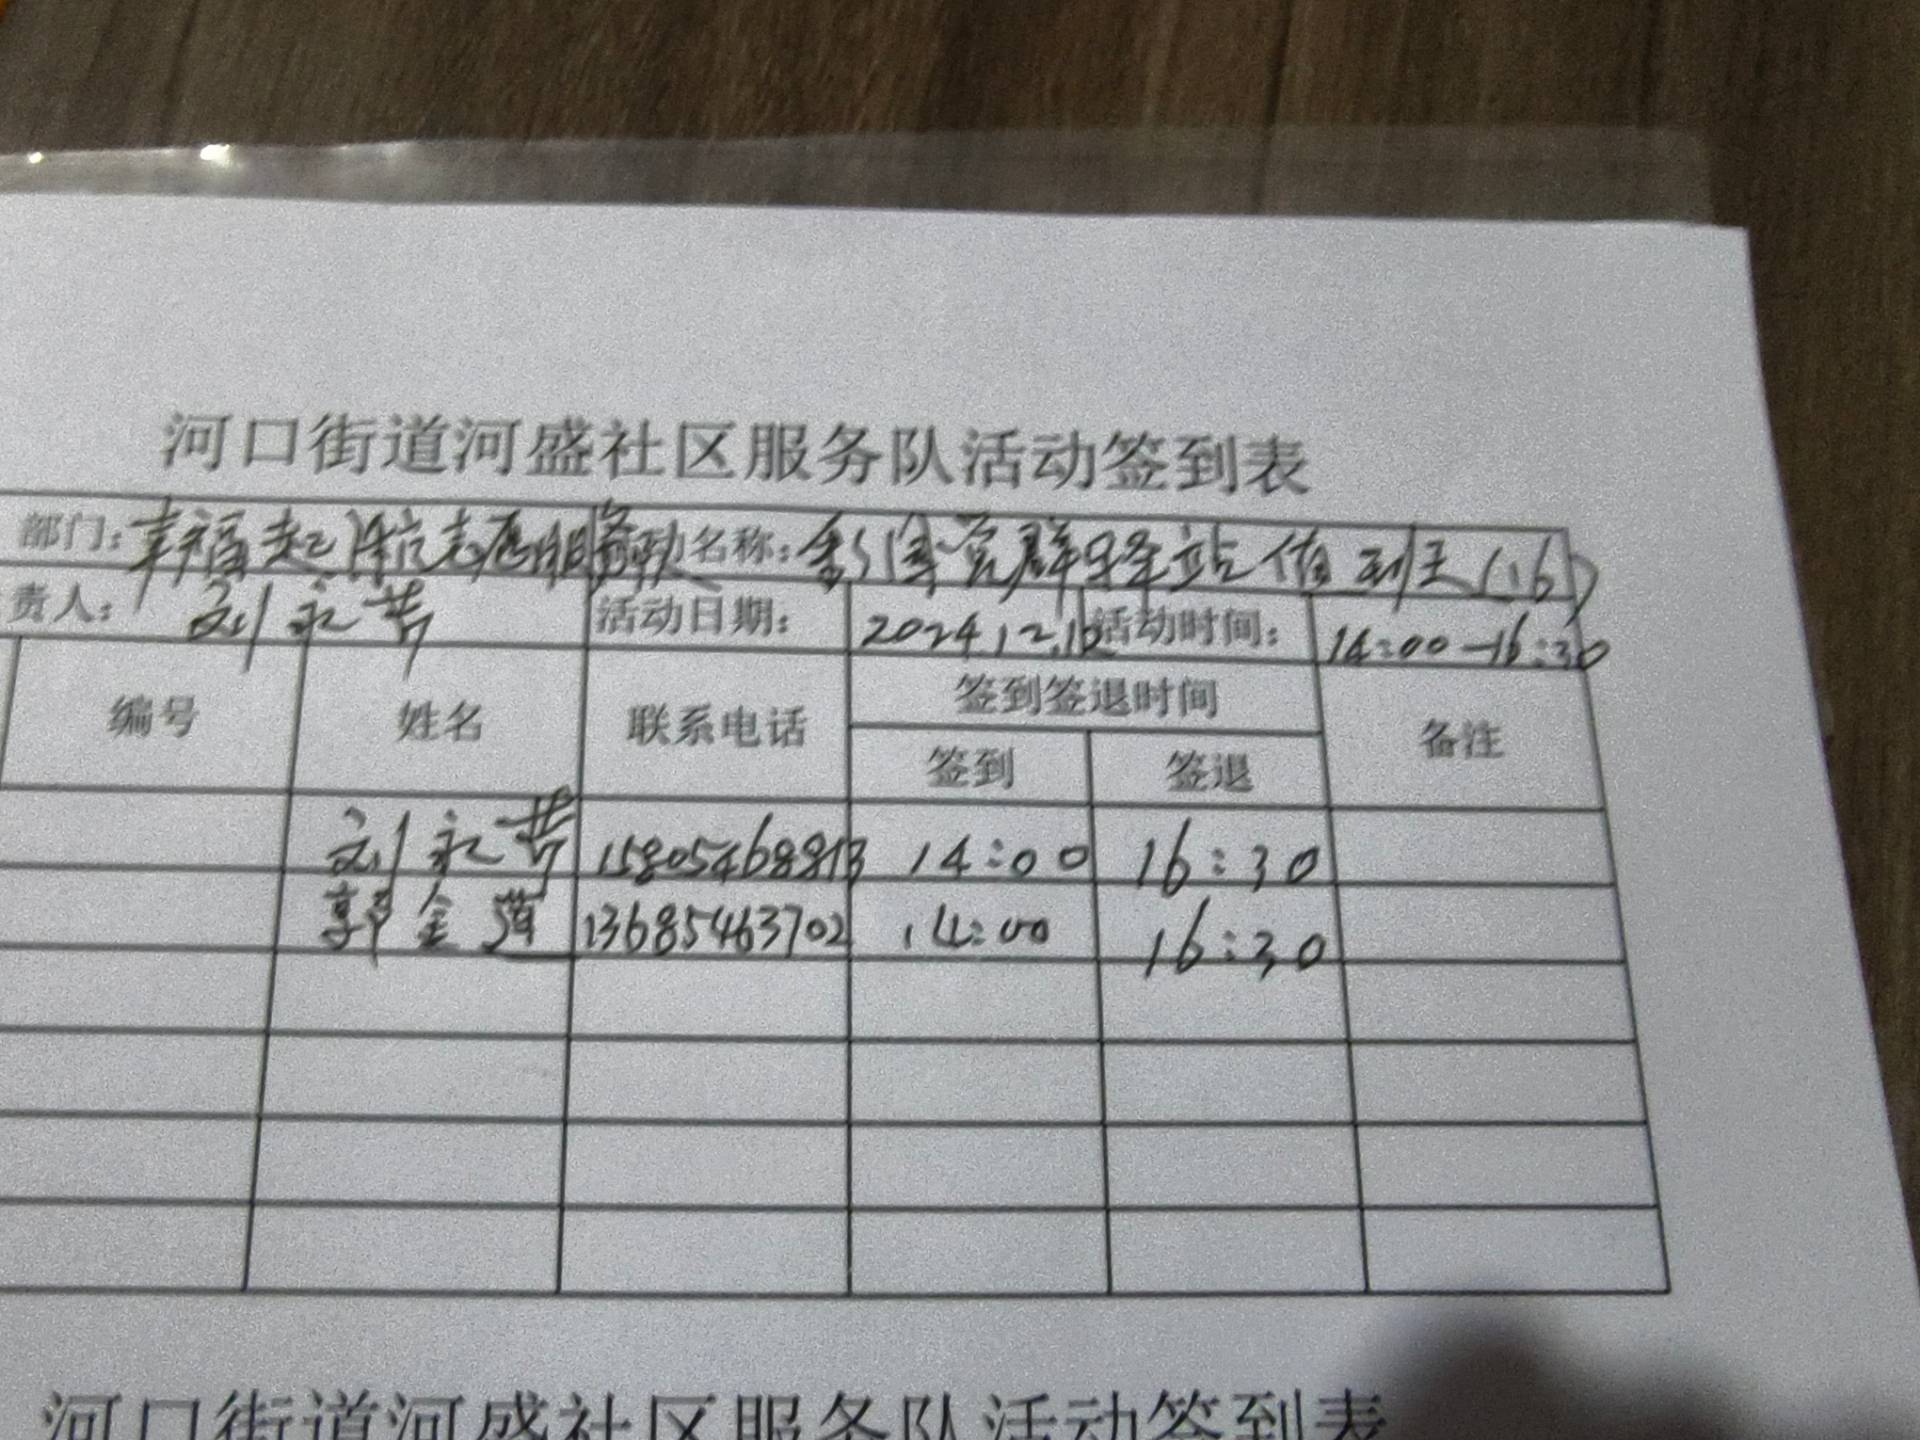 河口街道河盛社区服务队活动签到表
部门:幸福起航志愿服务队 名称:彩虹党群驿站值
责人: 刘永芳 活动日期: 2024.12.16 活动时间: 14:00-16:30
编号 姓名 联系电话 签到签退时间 备注
签到 签退
刘永芳 15805468813 14:00 16:30
郭金 13685463702 14:00 16:30
河口街道河盛社区服务队活动签到表